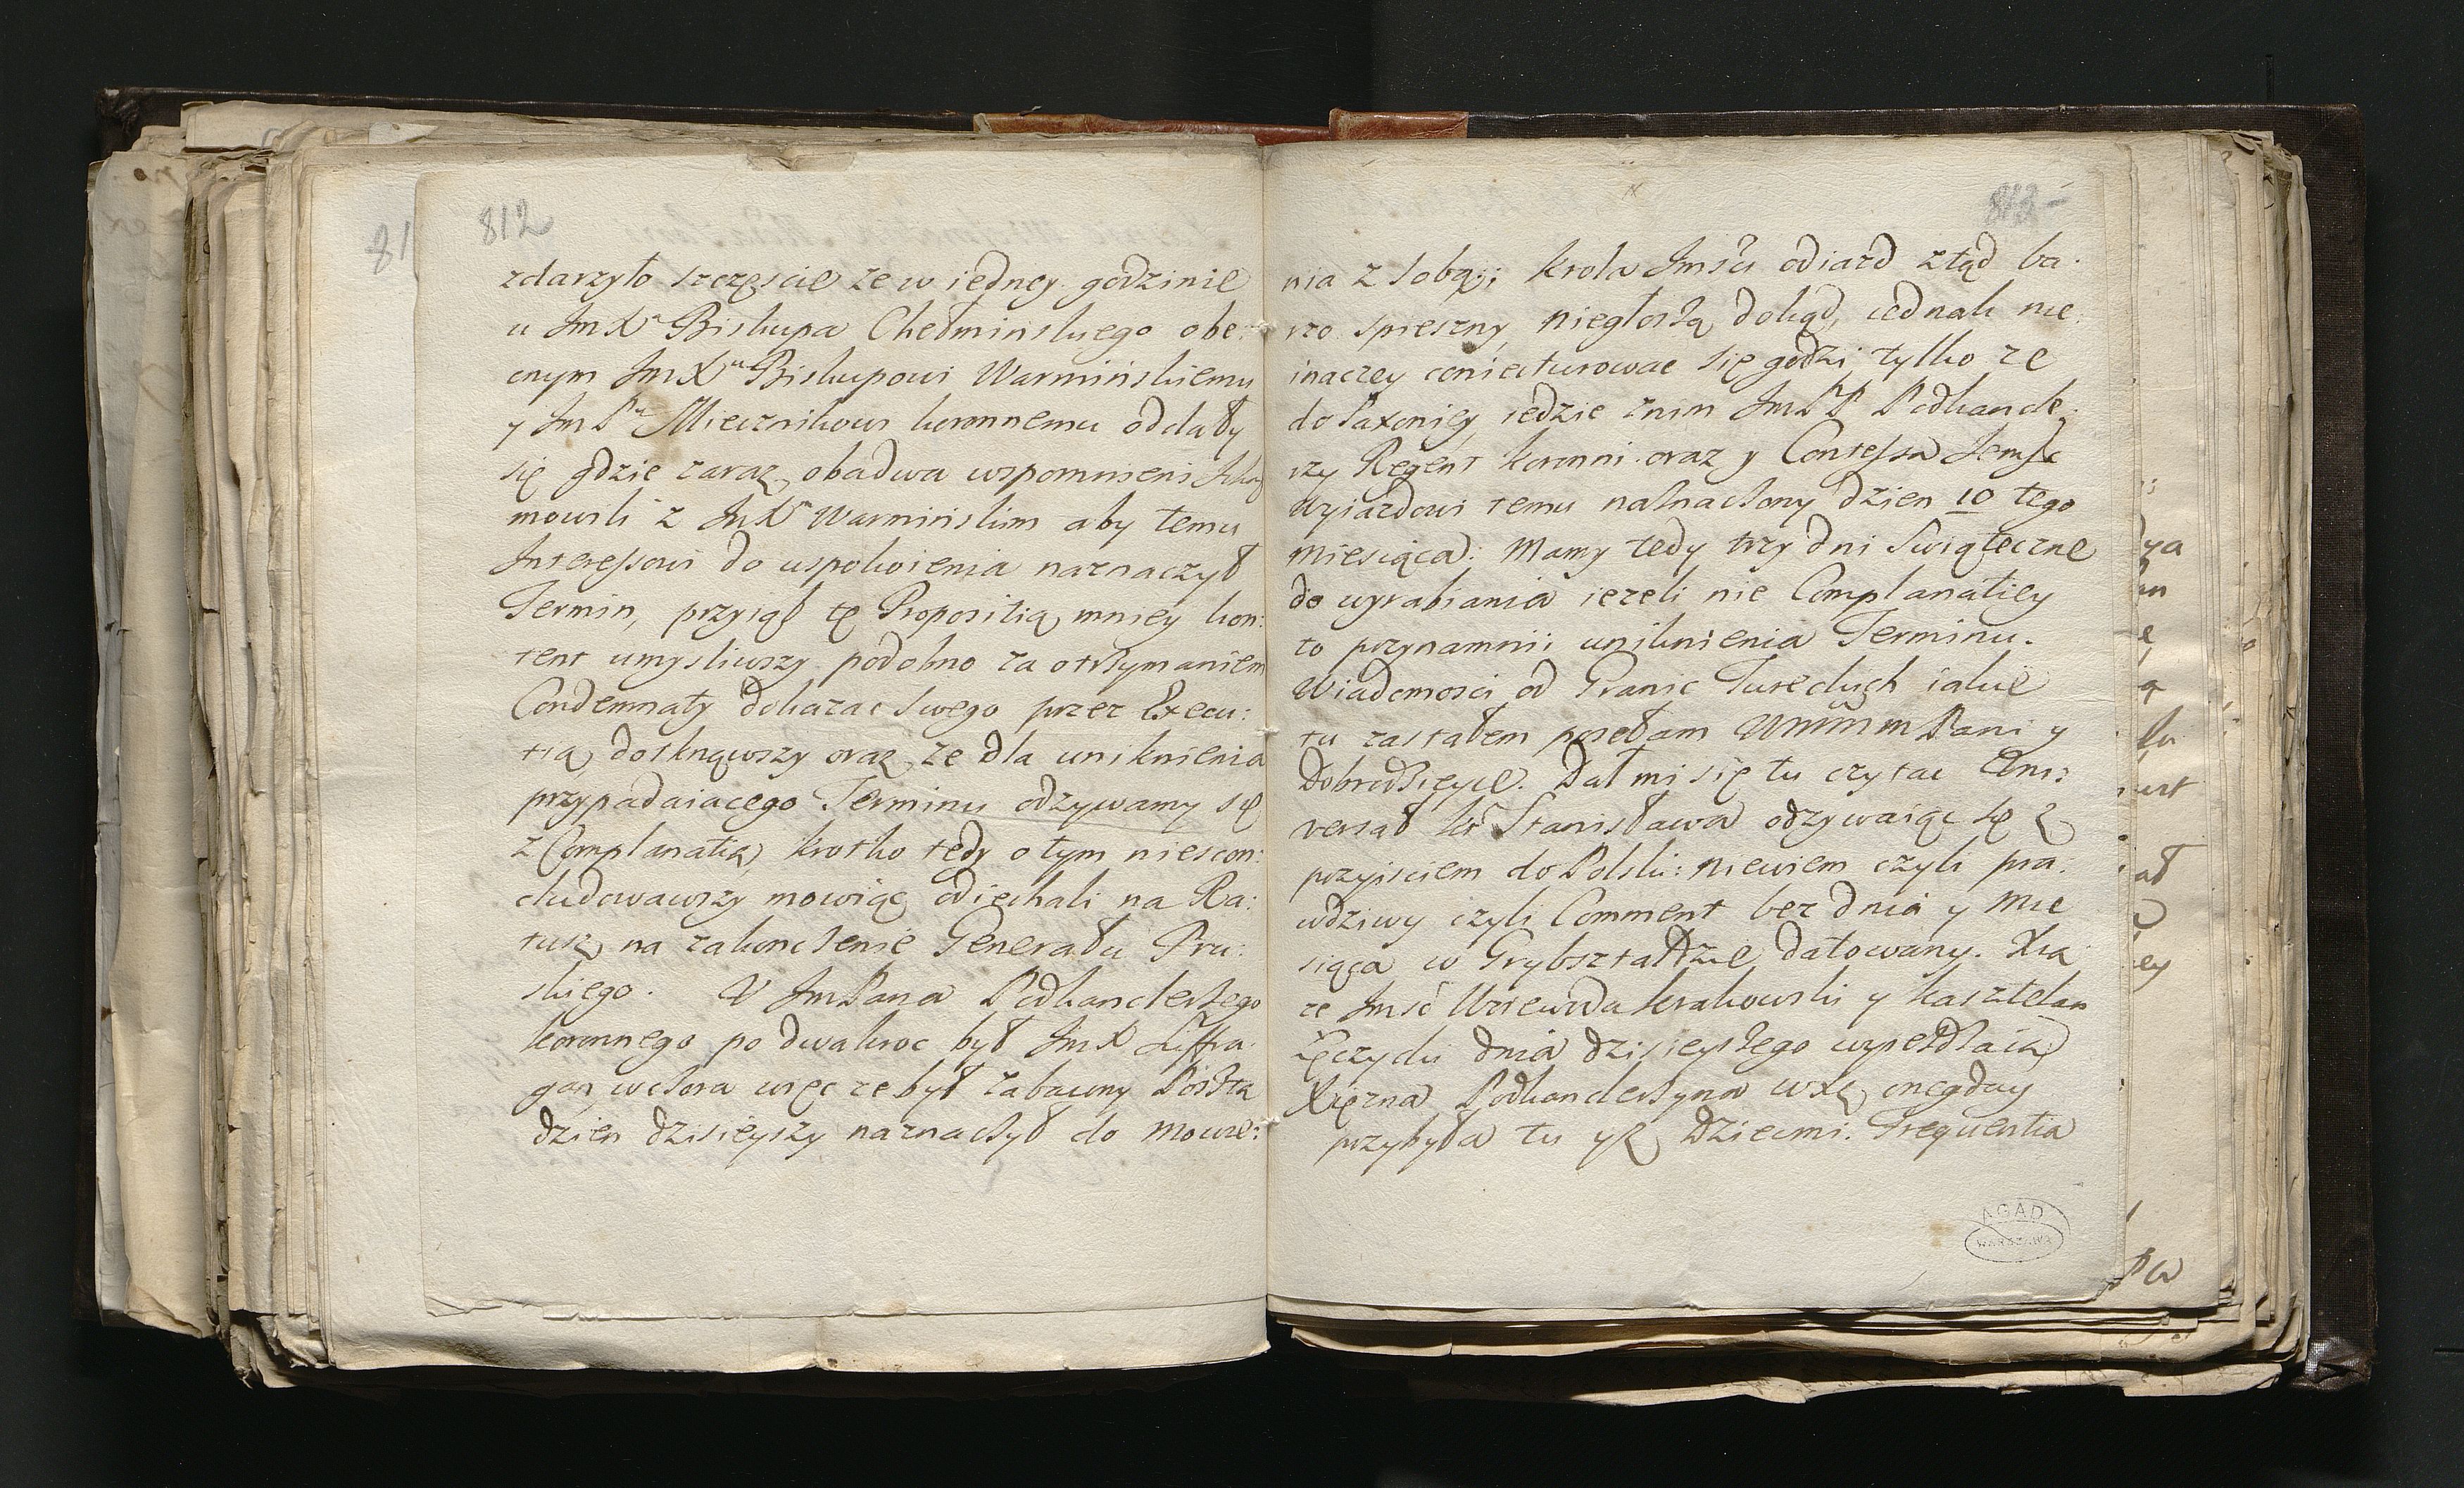 812
zdarzyło szczęscie ze w iedney godzinie
u ImX Biskupa Chełminskiego obe:
cnym ImX Biskupowi Warminskiemu
y ImP Miecznikowi koronnemu oddały
się gdzie zaraz obadwa wspomnieni
mowili z ImX Warminskim aby temu
Interessowi do uspokoienia naznaczył
Termin, przyiął tę Propositią mniey kon:
tent umysliwszy podobno za otrzymaniem
Condemnaty dokazac swego przez Execu:
tią, dotknąwszy oraz ze dla uniknienia
przypadaiacego Terminu odzywamy się
z Complanatią krotko tedy o tym niescon:
cludowawszy mowiąc odiechali na Ra:
tusz na zakonczenie Generału Pru:
skiego. U ImPana Podkanclerzego
koronnego po dwakroc był ImX Suffra:
gan wczora więc ze był zabawny
dzien dzisieyszy naznaczył do mowie:
813
nia z sobą; krola Imsci odiazd ztąd ba:
rzo spieszny, niegłoszą dokąd, iednak nie
inaczey coniecturowac się godzi tylko ze
do Saxoniey iedzie znim ImPP Podkancle:
rzy Regent koronni oraz y Contessa
wyiazdowi temu naznaczony dzien 10 tego
miesiąca: Mamy tedy trzy dni Swiąteczne
do wyrabiania iezeli nie Complanatiey
to przynamni: uniknienia Terminu.
Wiadomosci od Granic Tureckich iakie
tu zastałem posełam WMM Pani y
Dobrodzieyce. Dał mi się tu czytac Uni:
versał kr Stanisława odzywaiąc się z
przyisciem do Polski: niewiem czyli pra:
wdziwy czyli Comment bez dnia y mie
siąca w Grybsztaldzie datowany. Xią
ze Imsć Woiewoda krakowski y kasztelan
Łęczycki dnia dzisieyszego wyiezdzaią
Xięzna Podkanclerzyna WXL onegday
przybyła tu y z Dziecmi. Frequentia
AGAD
WARSZAWA